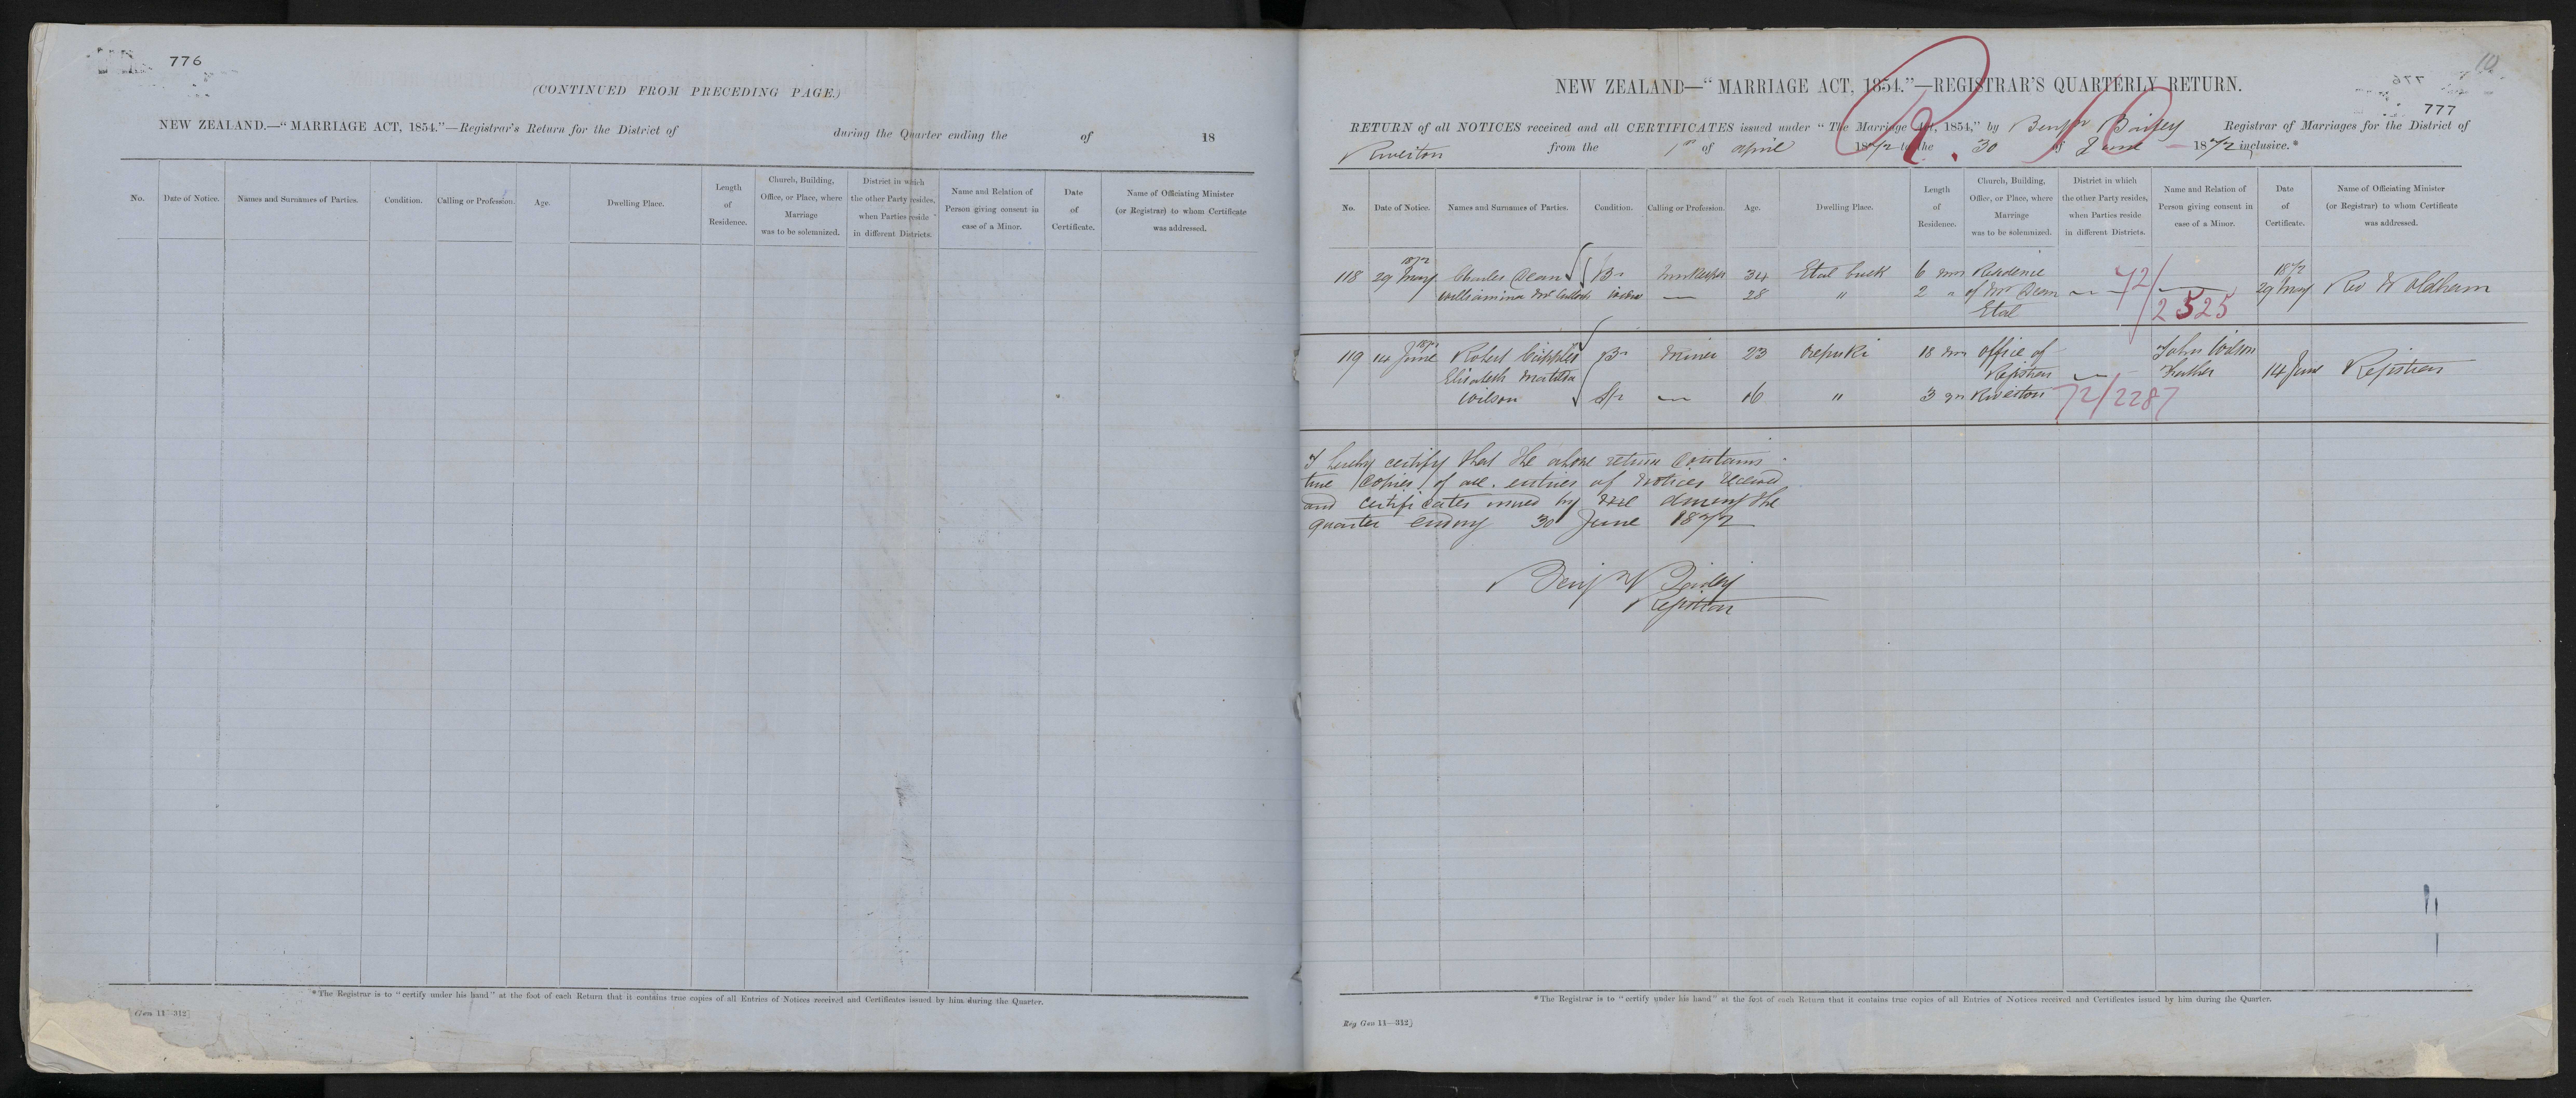 776
(CONTINUED FROM PRECEDING PAGE.)
NEW ZEALAND.—“MARRIAGE ACT, 1854.”—Registrar's Return for the District of during the Quarter ending the of 18
No. Date of Notice. Names and Surnames of Parties. Condition. Calling or Profession. Age. Dwelling Place. Length of Residence. Church, Building, Office, or Place, where Marriage was to be solemnized. District in which the other Party resides, when Parties reside in different Districts. Name and Relation of Person giving consent in case of a Minor. Date of Certificate. Name of Officiating Minister (or Registrar) to whom Certificate was addressed.
*The Registrar is to “certify under his hand” at the foot of each Return that it contains true copies of all Entries of Notices received and Certificates issued by him during the Quarter.
Gen 11—312]
NEW ZEALAND—“MARRIAGE ACT, 1854.”—REGISTRAR'S QUARTERLY RETURN.
776
777
RETURN of all NOTICES received and all CERTIFICATES issued under “The Marriage Act, 1854,” by Benjn Bailey Registrar of Marriages for the District of
Riverton from the 1st of April 1872 to the 30 of June 1872 inclusive.*
No. Date of Notice. Names and Surnames of Parties. Condition. Calling or Profession. Age. Dwelling Place. Length of Residence. Church, Building, Office, or Place, where Marriage was to be solemnized. District in which the other Party resides, when Parties reside in different Districts. Name and Relation of Person giving consent in case of a Minor. Date of Certificate. Name of Officiating Minister (or Registrar) to whom Certificate was addressed.
1872 1872
118 29 May Charles Dean Br Innkeeper 34 Etal Creek 6 mos Residence 72/ 29 May Rev W Oldham
Williamina 28 " 2 " of Mr Dean 2525
Etal
1872
119 14 June Robert Cupples Br Miner 23 Orepuki 18 mos Office of John Wilson
Elisabeth Matilda Registrar Father 14 June Registrar
Wilson Sp 16 " 3 yrs Riverton 72/2287
I hereby certify that the above return contains
true copies of all entries of Notices received
and certificates issued by me during the
quarter ending 30 June 1872
Benj Bailey
Registrar
*The Registrar is to “certify under his hand” at the foot of each Return that it contains true copies of all Entries of Notices received and Certificates issued by him during the Quarter.
Reg Gen 11—312]